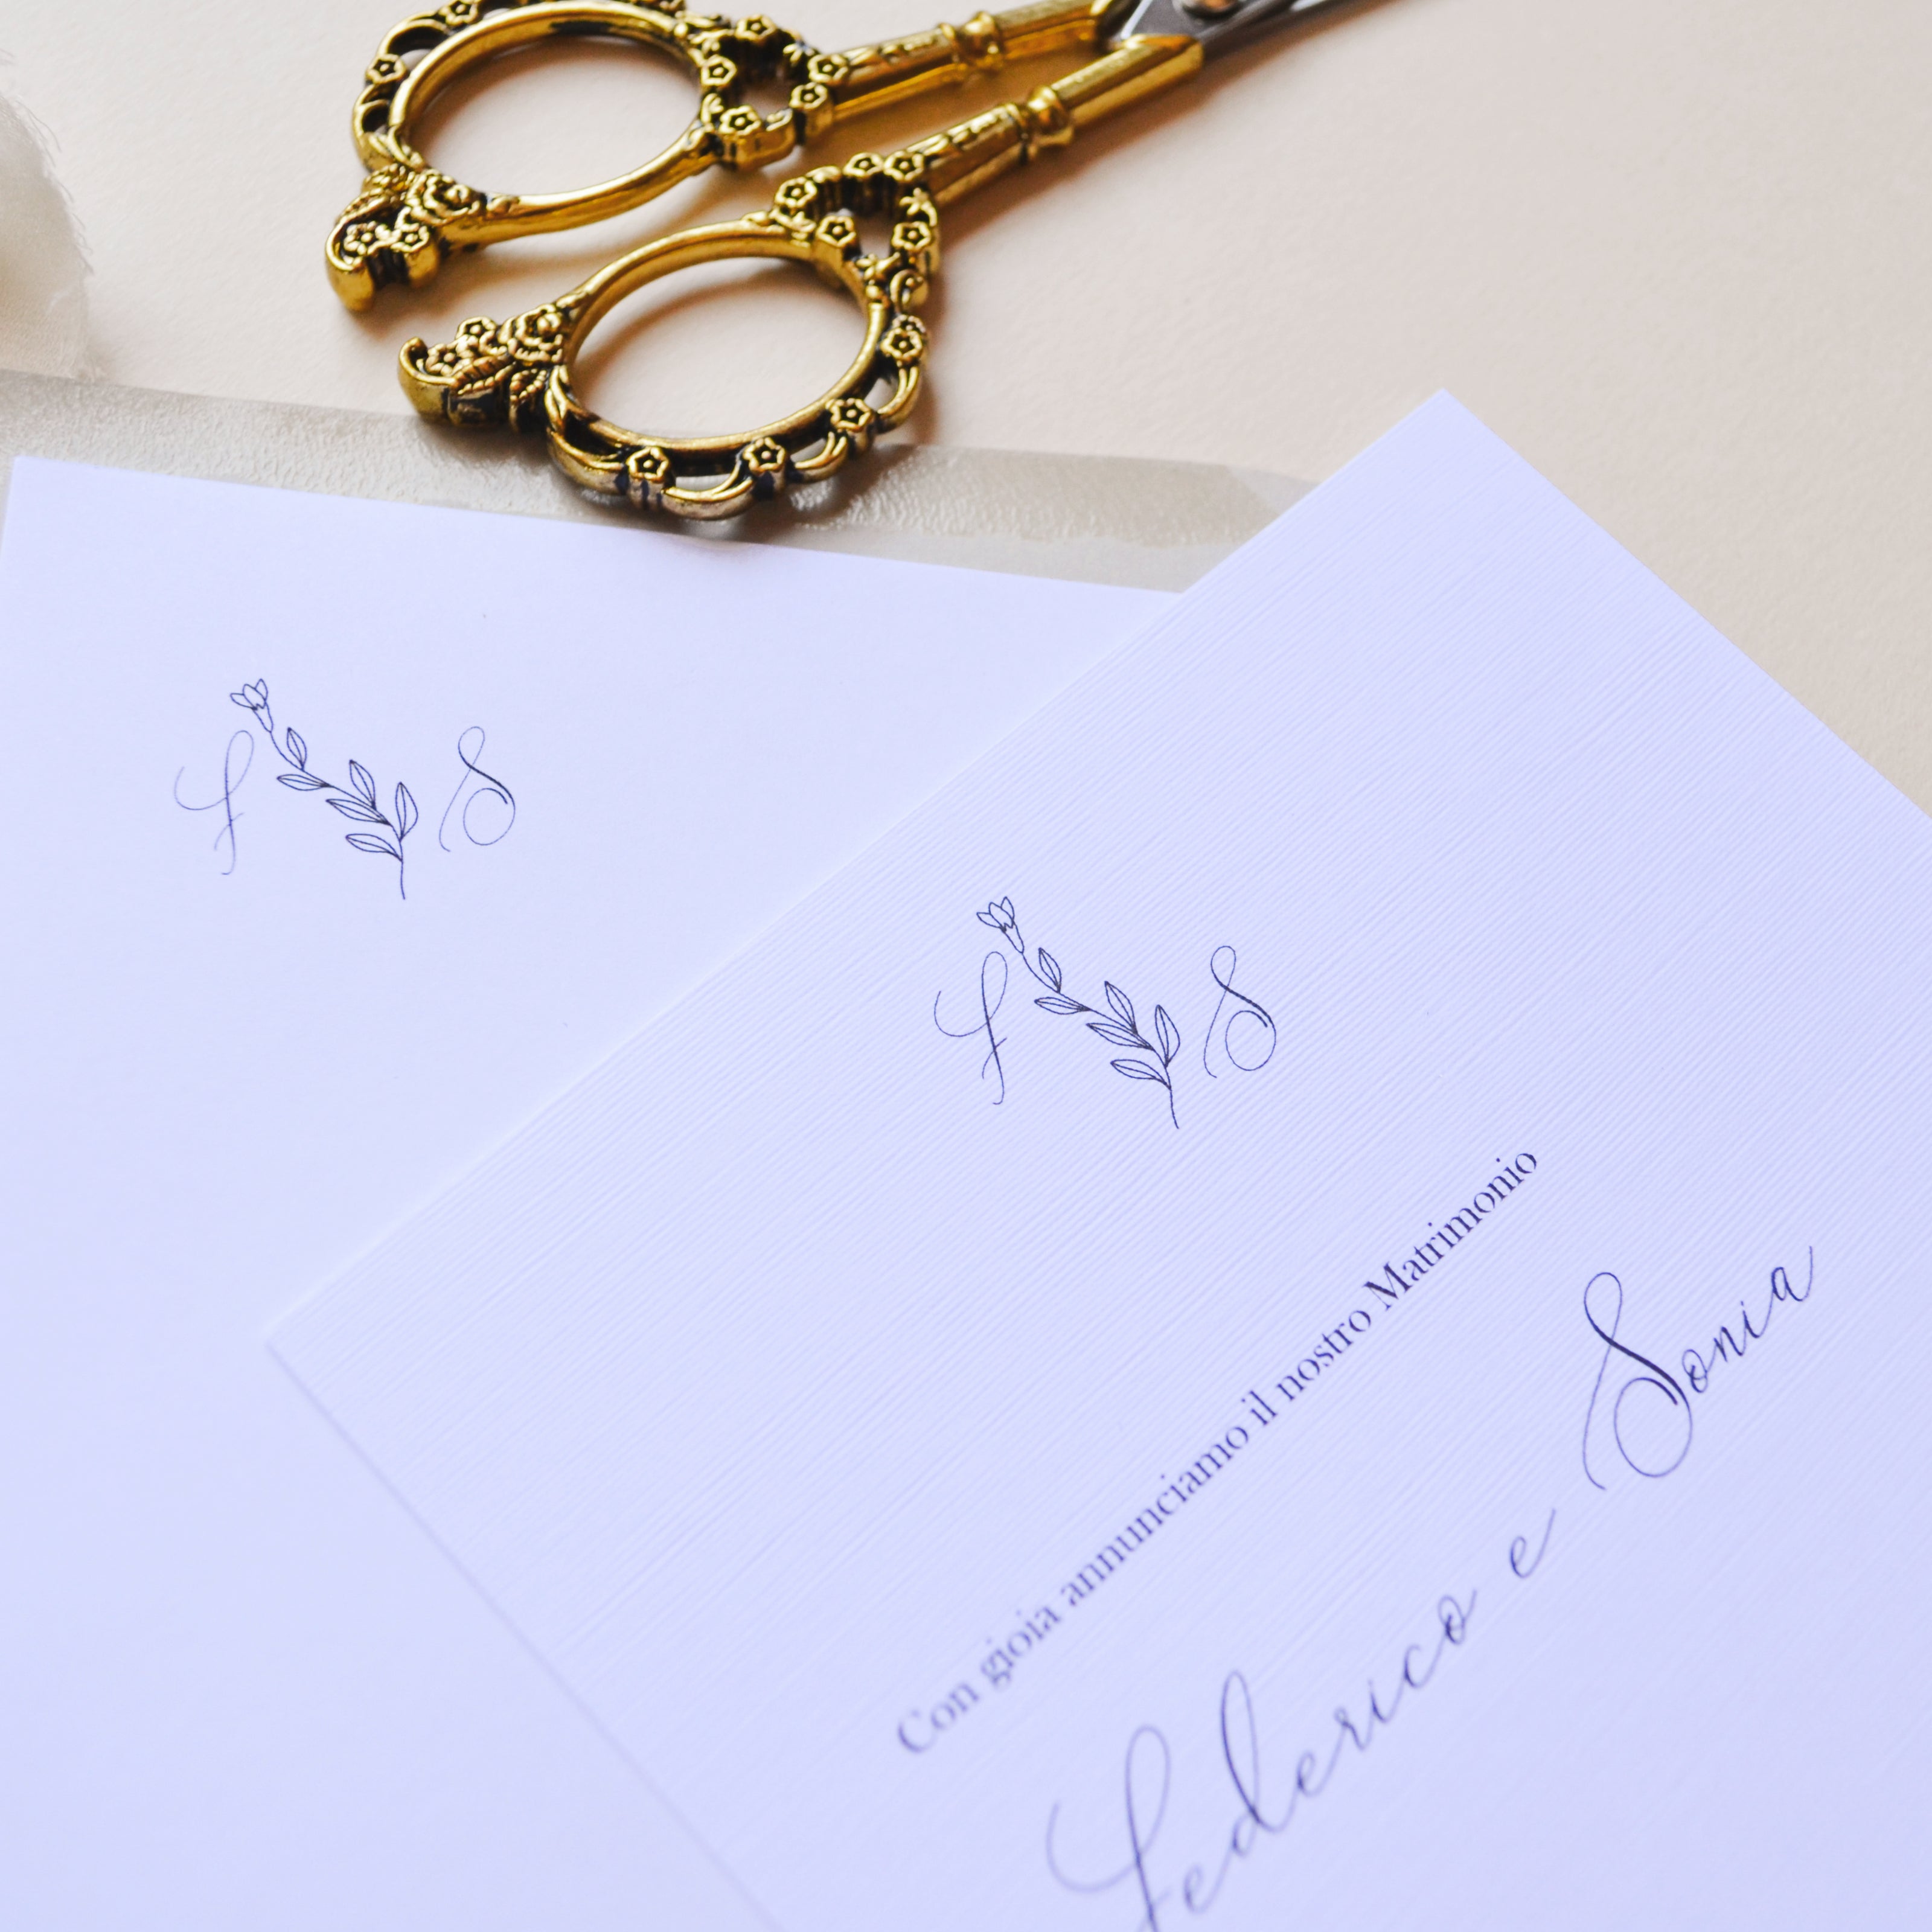 F S
F S
Con gioia annunciamo il nostro Matrimonio
Federico e Sonia